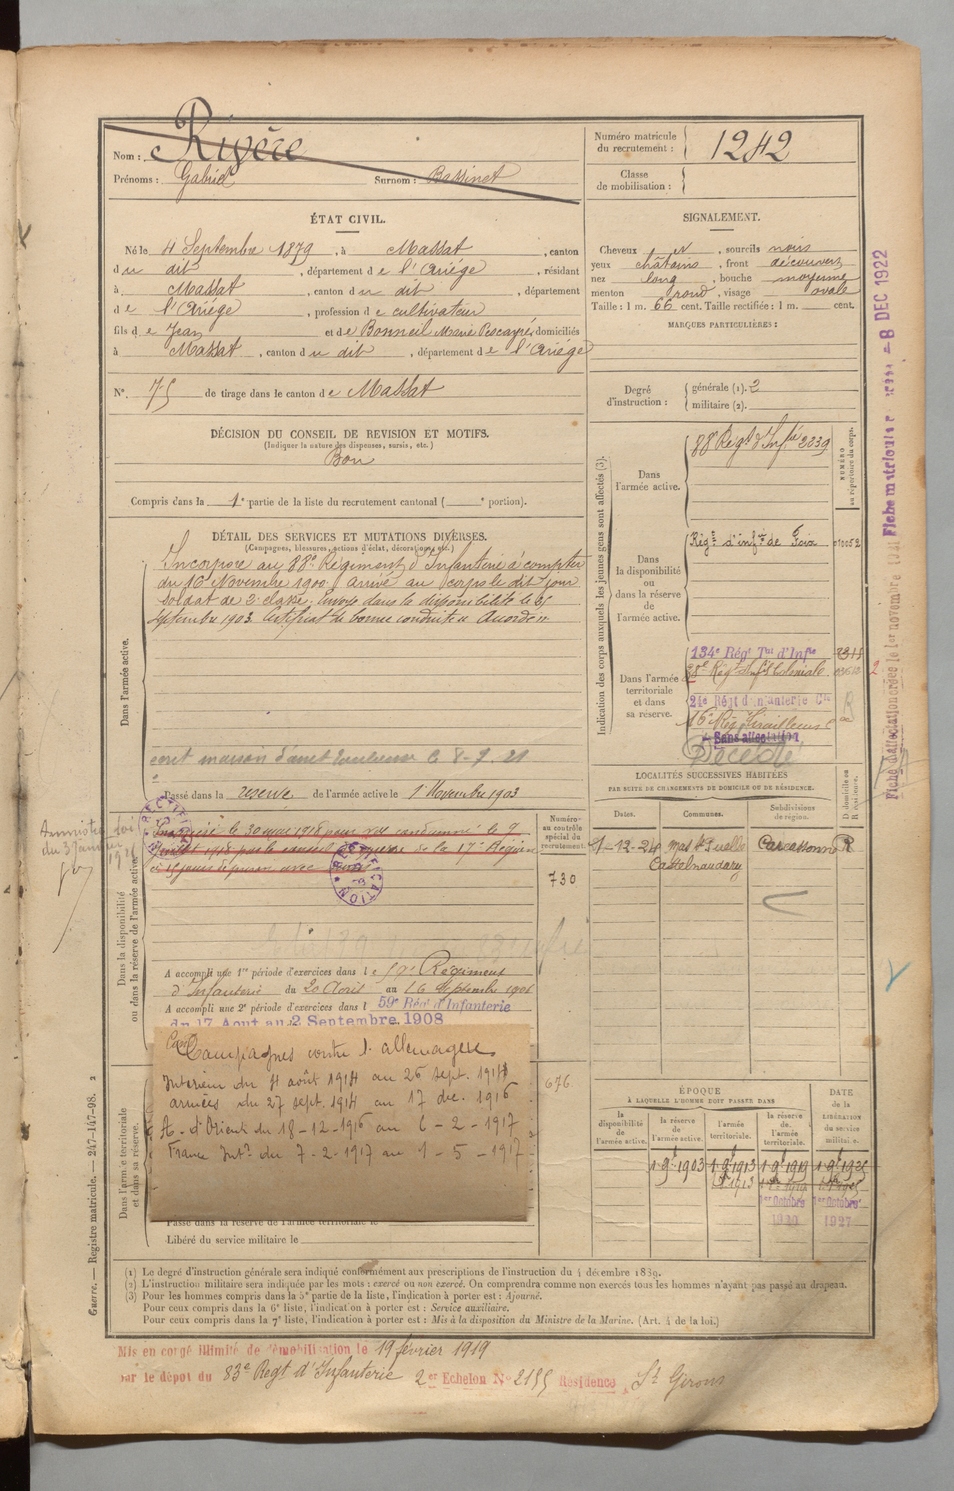 Nom : Rivère
Prénoms : Gabriel Surnom : Bassinet
Numéro matricule du recrutement : 1242
Classe de mobilisation :
ÉTAT CIVIL.
Né le 4 Septembre 1879, à Massat, canton
du dit, département de l'Ariége, résidant
à Massat, canton du dit, département
de l'Ariége, profession de cultivateur
fils de Jean et de Bonneil Marie domiciliés
à Massat, canton du dit, département de l'Ariége
N° 75 de tirage dans le canton de Massat
SIGNALEMENT.
Cheveux et, sourcils noirs
yeux châtains, front découvert
nez long, bouche moyenne
menton rond, visage ovale
Taille : 1 m. 66 cent. Taille rectifiée : 1 m. cent.
MARQUES PARTICULIÈRES :
Degré d'instruction : générale (1). 2
militaire (2).
DÉCISION DU CONSEIL DE REVISION ET MOTIFS.
(Indiquer la nature des dispenses, sursis, etc.)
Bon
Compris dans la 1e partie de la liste du recrutement cantonal ( e portion).
DÉTAIL DES SERVICES ET MUTATIONS DIVERSES.
(Campagnes, blessures, actions d'éclat, décorations, etc.)
Dans l'armée active.
Incorporé au 88e Régiment d'Infanterie à compter
du 16 Novembre 1900. Arrivé au corps le dit jour
soldat de 2e classe. Envoyé dans la disponibilité le
Septembre 1903. Certificat de bonne conduite Accordé
maison d'arrêt
Passé dans la réserve de l'armée active le 1er Novembre 1903
Dans la disponibilité ou dans la réserve de l'armée active.
le 30 mai 1918 pour condamné le 9
juillet 1918 par le conseil de guerre de la 17e Région
à 15 jours de prison avec
RECTIFICATION
RECTIFICATION
Amnistie loi
du 3 Janvier
Numéro au contrôle spécial du recrutement.
730
A accompli une 1re période d'exercices dans le Régiment
d'Infanterie du 20 Août au 16 Septembre 1906
A accompli une 2e période d'exercices dans l 59e Régt d'Infanterie
du 17 Aout au 2 Septembre 1908
Campagnes contre l'allemagne
Intérieur du 4 août 1914 au 26 sept. 1914
armées du 27 sept. 1914 au 17 déc. 1916
A. d'Orient du 18-12-1916 au 6-2-1917
France Intr du 7-2-1917 au 1-5-1917
676
Dans l'armée territoriale et dans sa réserve.
Passé dans la réserve de l'armée territoriale le
Libéré du service militaire le
Indication des corps auxquels les jeunes gens sont affectés (3).
NUMÉRO au répertoire du corps.
Dans l'armée active.
88 Régt d'Infie 2239
Dans la disponibilité ou dans la réserve de l'armée active.
Régt d'infie de Foix 010052
Dans l'armée territoriale et dans sa réserve.
134e Régt Tal d'Infie
38e Régt Infie Coloniale
24e Régt d'Infanterie Cle
16e Rég Tirailleurs
Sans affectation
Décédé
LOCALITÉS SUCCESSIVES HABITÉES
PAR SUITE DE CHANGEMENTS DE DOMICILE OU DE RÉSIDENCE.
Dates. Communes. Subdivisions de région. D domicile ou R résidence.
1-12-24 Mas Stes Puelles Carcassonne R
Castelnaudary
ÉPOQUE
À LAQUELLE L'HOMME DOIT PASSER DANS
la disponibilité de l'armée active. la réserve de l'armée active. l'armée territoriale. la réserve de l'armée territoriale.
DATE de la LIBÉRATION du service militaire.
1 9bre 1903 1 9bre 1913 1 9bre 1919 1 9bre 1925
1er Octobre 1920 1er Octobre 1927
Fiche matricule 8 DEC 1922
Fiche d'affectation créée le 1er novembre
Guerre. — Registre matricule. — 247-147-98. 2
(1) Le degré d'instruction générale sera indiqué conformément aux prescriptions de l'instruction du 4 décembre 1889.
(2) L'instruction militaire sera indiquée par les mots : exercé ou non exercé. On comprendra comme non exercés tous les hommes n'ayant pas passé au drapeau.
(3) Pour les hommes compris dans la 5e partie de la liste, l'indication à porter est : Ajourné.
Pour ceux compris dans la 6e liste, l'indication à porter est : Service auxiliaire.
Pour ceux compris dans la 7e liste, l'indication à porter est : Mis à la disposition du Ministre de la Marine. (Art. 4 de la loi.)
Mis en congé illimité de démobilisation le 19 février 1919
par le dépot du 83e Régt d'Infanterie 2er Echelon N° 2155 Résidence St Girons